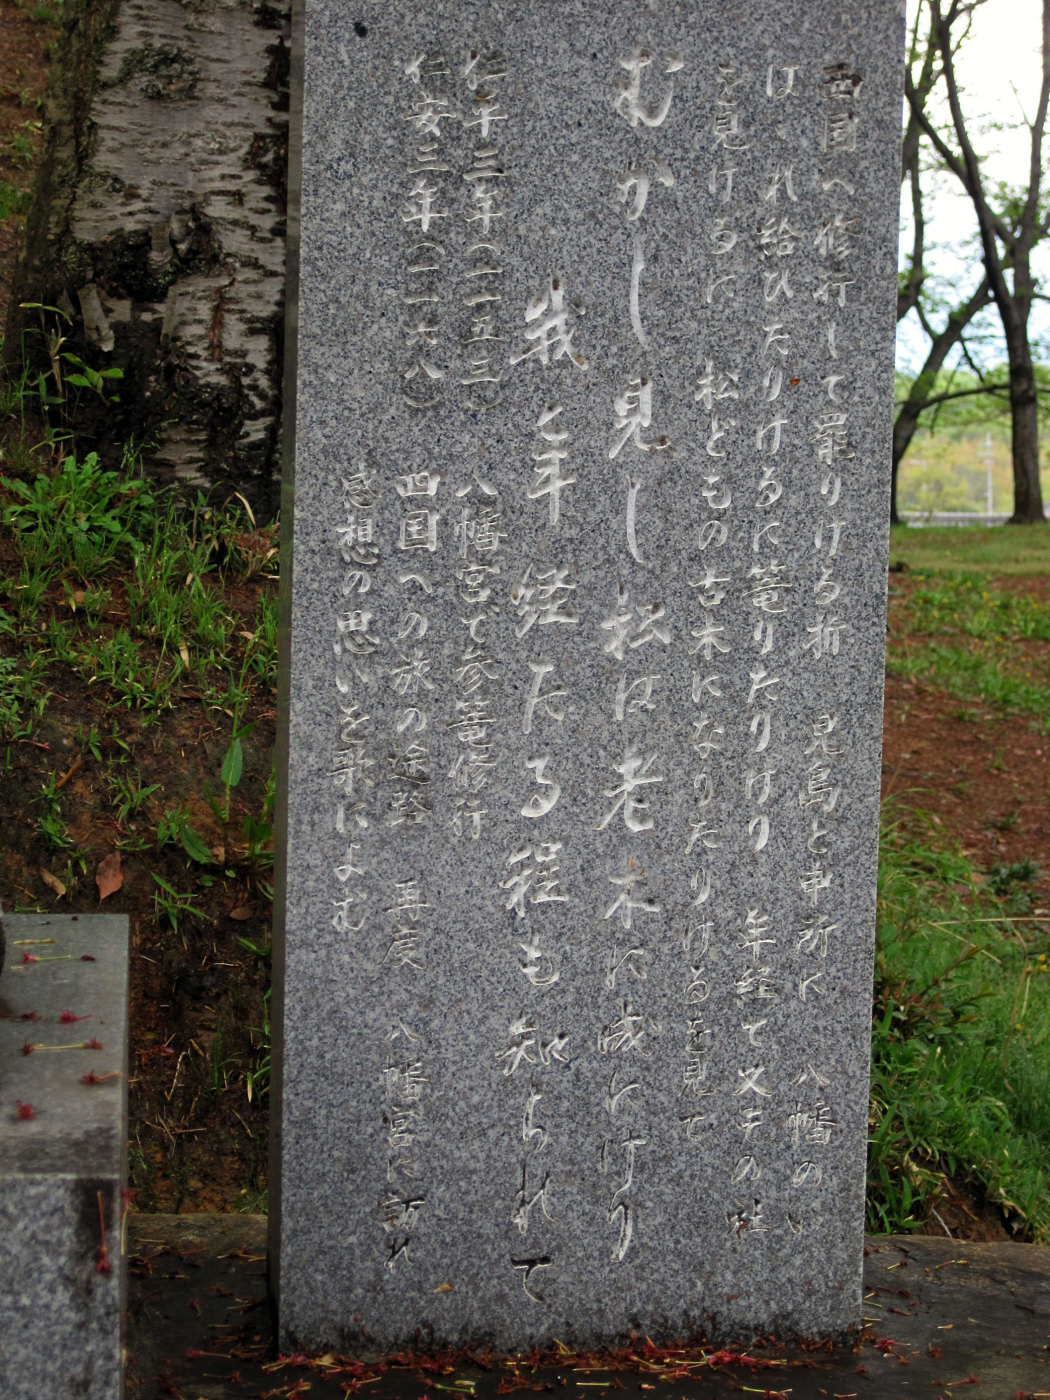 西国へ修行して罷りける折 児島と申所に 八幡の
はれ給ひたりけるに篭りたりけり 年経て又その社
を見けるに 松どもの古木になりたりけるを見て
むかし見し松は老木に成にけり
我と年経たる程も知られて
仁平三年(一一五三) 八幡宮で参篭修行
仁安三年(一一六八) 四国への旅の途路 再度 八幡宮に訪れ
感想の思いを歌によむ